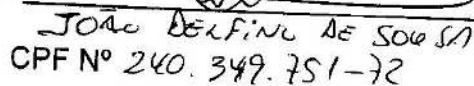 JOÃO DELFINO DE SOUSA
CPF Nº 240.349.751-72